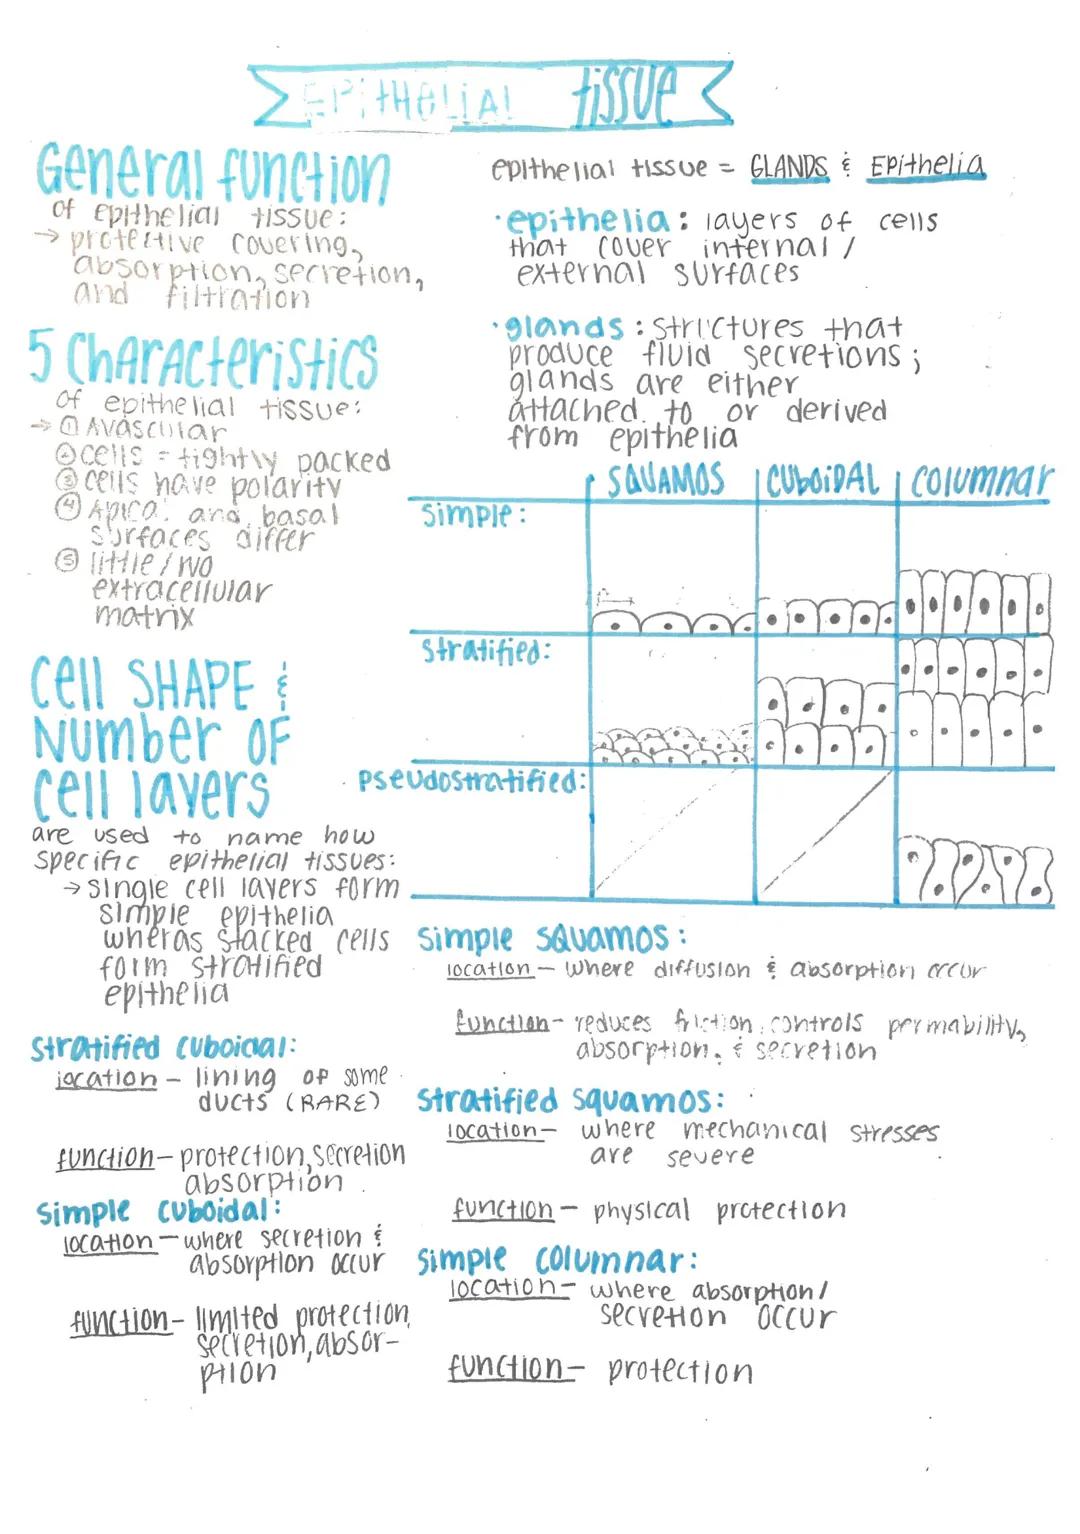 EPITHELIAL tissue
General function
of epithelial tissue:
→ protective covering,
absorption, secretion,
and filtration
5 Characteristics
of epithelial tissue:
→ ① Avascular
② cells = tightly packed
③ cells have polarity
④ Apical and basal
surfaces differ
⑤ little / no
extracellular
matrix
Cell SHAPE &
Number of
cell layers
are used to name how
specific epithelial tissues:
→ single cell layers form
simple epithelia
wheras stacked cells
form stratified
epithelia
stratified cuboidal:
location – lining of some
ducts (RARE)
function – protection, secretion
absorption
simple cuboidal:
location – where secretion &
absorption occur
function – limited protection,
secretion, absor-
ption
epithelial tissue = GLANDS & Epithelia
· epithelia: layers of cells
that cover internal /
external surfaces
· glands: structures that
produce fluid secretions;
glands are either
attached to or derived
from epithelia
SQUAMOS CUBOIDAL columnar
simple:
stratified:
pseudostratified:
simple squamos:
location – where diffusion & absorption occur
function – reduces friction, controls permability,
absorption, & secretion
stratified squamos:
location – where mechanical stresses
are severe
function – physical protection
simple columnar:
location – where absorption /
secretion occur
function – protection